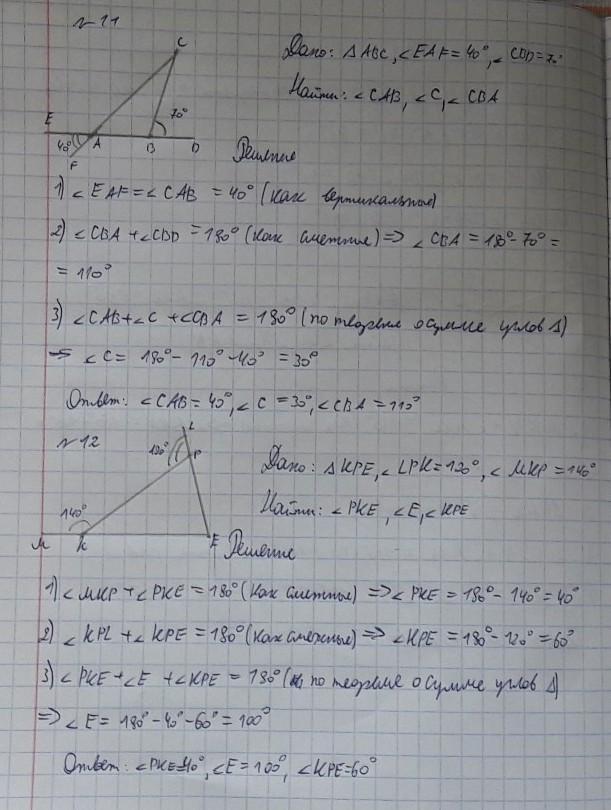 № 11
C
Дано: △ABC, ∠EAF = 40°, ∠CBD = 70°
Найти: ∠CAB, ∠C, ∠CBA
E
70°
40°
A
B
D
F
Решение
1) ∠EAF = ∠CAB = 40° (как вертикальные)
2) ∠CBA + ∠CBD = 180° (как смежные) => ∠CBA = 180° - 70° =
= 110°
3) ∠CAB + ∠C + ∠CBA = 180° (по теореме о сумме углов △)
=> ∠C = 180° - 110° - 40° = 30°
Ответ: ∠CAB = 40°, ∠C = 30°, ∠CBA = 110°
№ 12
L
120°
P
Дано: △KPE, ∠LPK = 120°, ∠MKP = 140°
Найти: ∠PKE, ∠E, ∠KPE
140°
M
K
E
Решение
1) ∠MKP + ∠PKE = 180° (как смежные) => ∠PKE = 180° - 140° = 40°
2) ∠KPL + ∠KPE = 180° (как смежные) => ∠KPE = 180° - 120° = 60°
3) ∠PKE + ∠E + ∠KPE = 180° (по теореме о сумме углов △)
=> ∠E = 180° - 40° - 60° = 100°
Ответ: ∠PKE = 40°, ∠E = 100°, ∠KPE = 60°